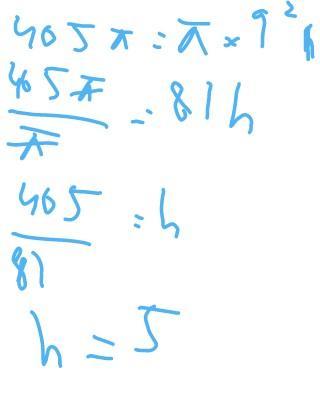 405π = π × 9² h
405π/π = 81h
405/81 = h
h = 5